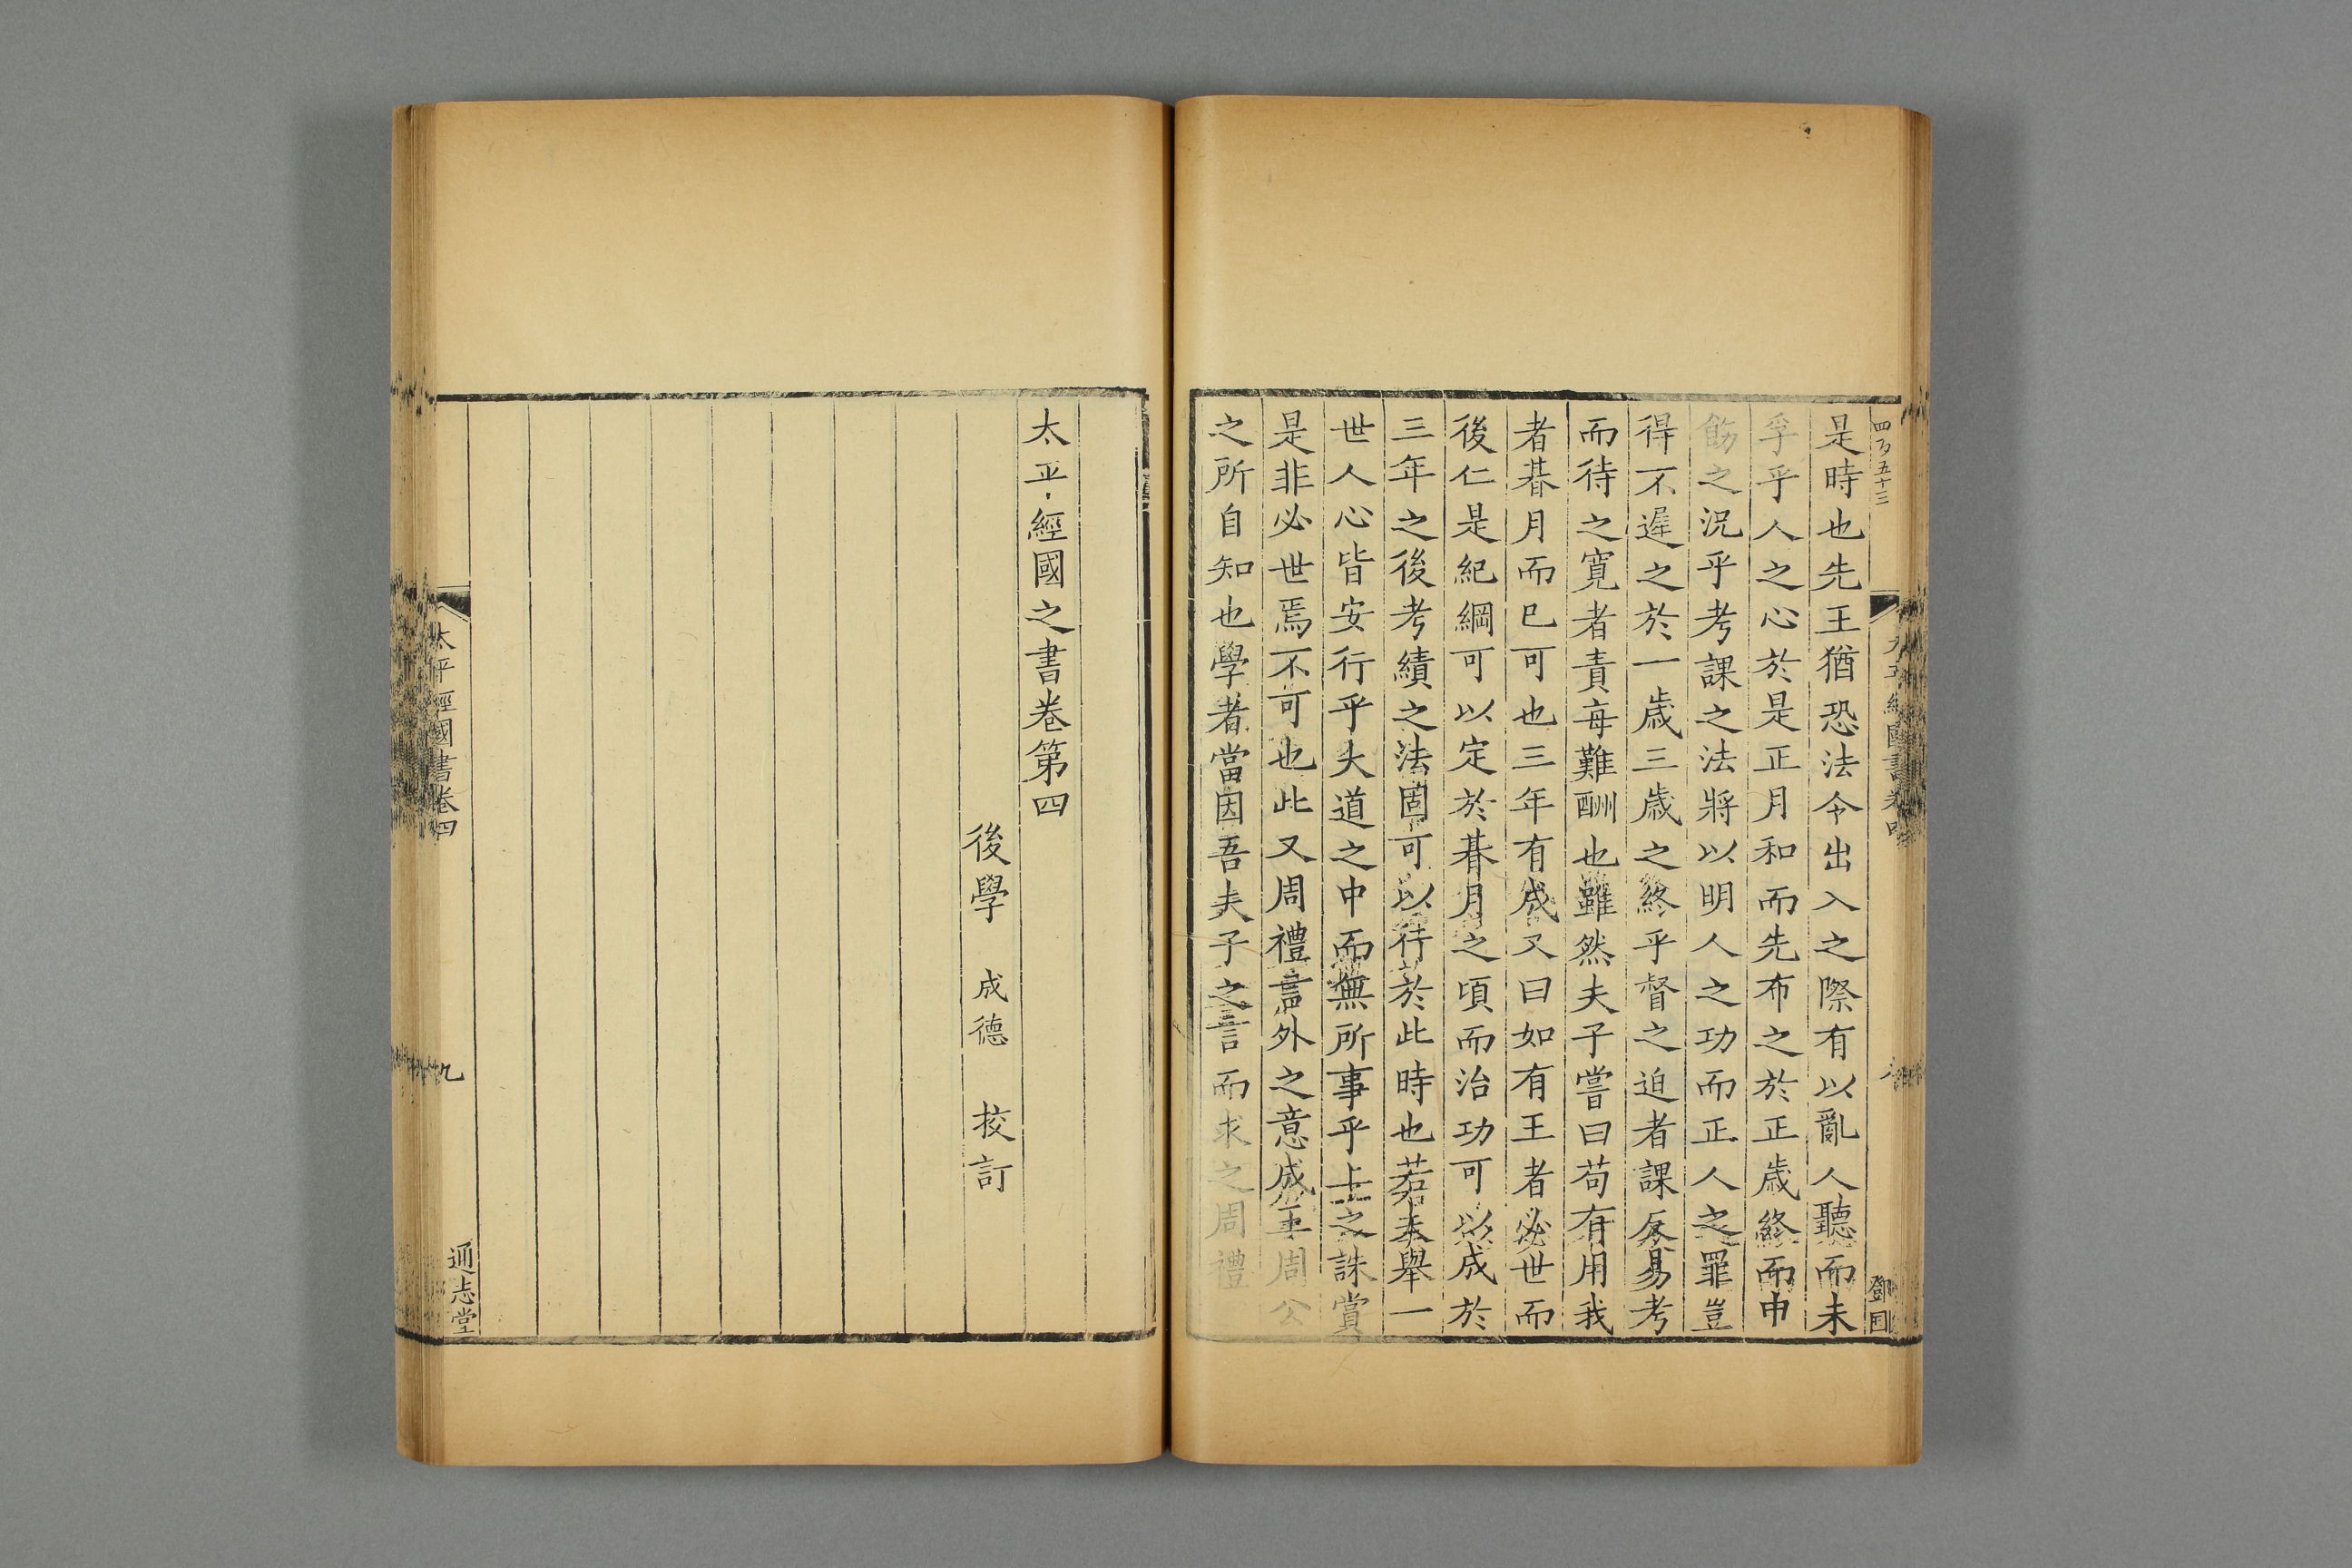 四百五十三
鄧囯
是時也先王猶恐法令出入之際有以亂人聽而未
孚乎人之心於是正月和而先布之於正歲終而申
飭之況乎考課之法將以明人之功而正人之罪豈
得不遲之於一歲三歲之終乎督之迫者課反易考
而待之寛者責每難酬也雖然夫子嘗曰苟有用我
者朞月而已可也三年有成又曰如有王者必世而
後仁是紀綱可以定於朞月之頃而治功可以成於
三年之後考績之法固可以行於此時也若夫舉一
世人心皆安行乎大道之中而無所事乎上之誅賞
是非必世焉不可也此又周禮書外之意成王周公
之所自知也學者當因吾夫子之言而求之周禮
太平經國之書卷第四
後學 成德 校訂
太平經國書卷四
九
通志堂